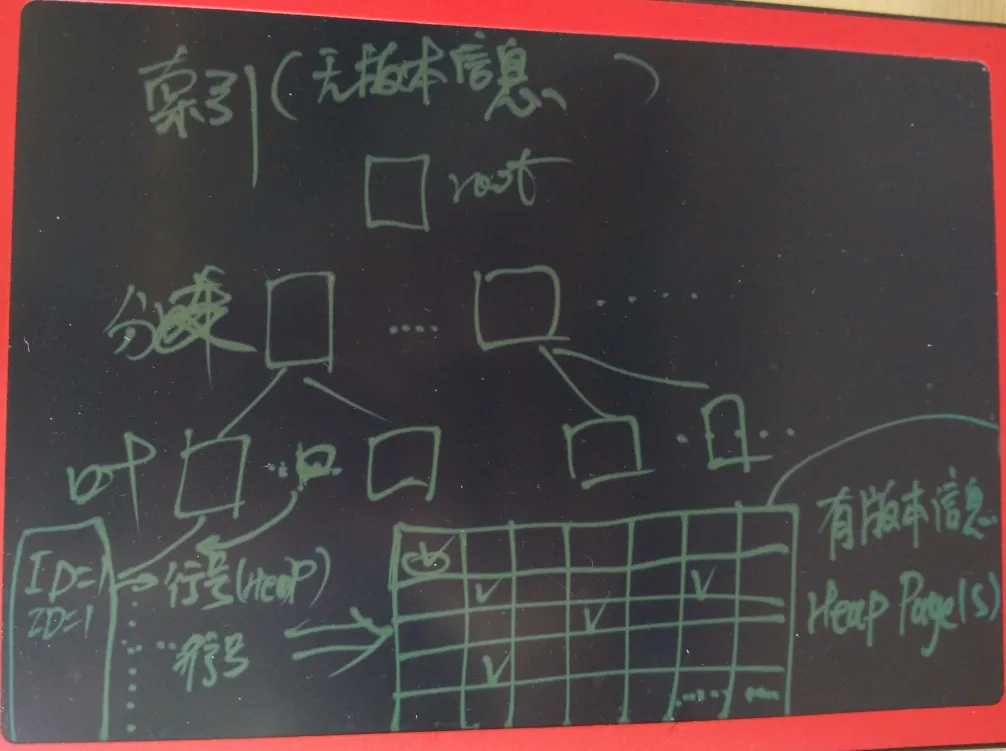 索引(无版本信息)
root
分
叶
有版本信息
ID=1 行号(HeaP)
Heap Page(s)
ID=1
行号